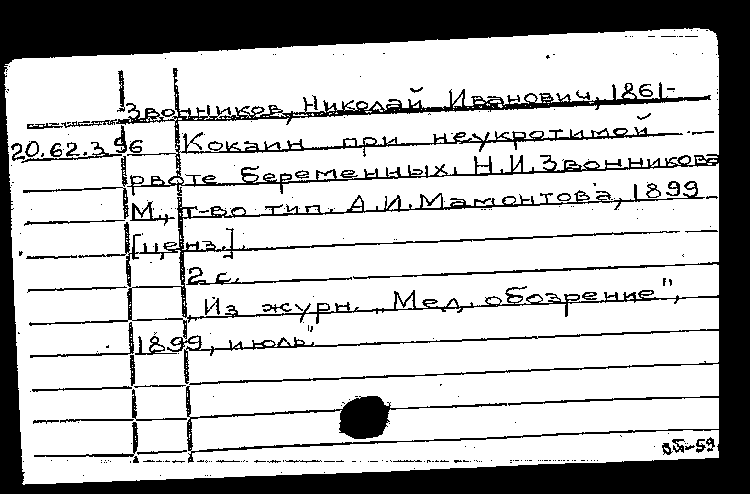 Звонников, Николай Иванович, 1861-
20.62.3.96 Кокаин при неукротимой
рвоте беременных. Н.И.Звонникова
М., т-во тип. А.И.Мамонтова, 1899
[ценз.].
2 с.
Из журн. „Мед. обозрение",
1899, июль".